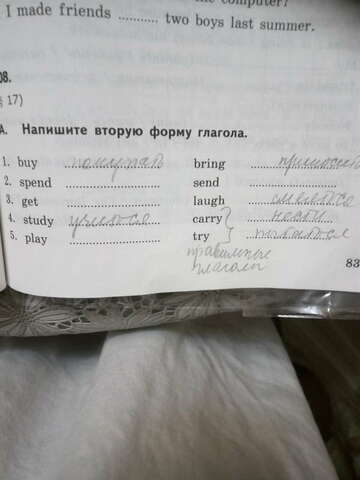 the computer?
I made friends .......... two boys last summer.
08.
§ 17)
А. Напишите вторую форму глагола.
1. buy покупать bring приносить
2. spend .......... send ..........
3. get .......... laugh смеяться
4. study учиться carry нести
5. play .......... try пытаться
правильные
глаголы
83